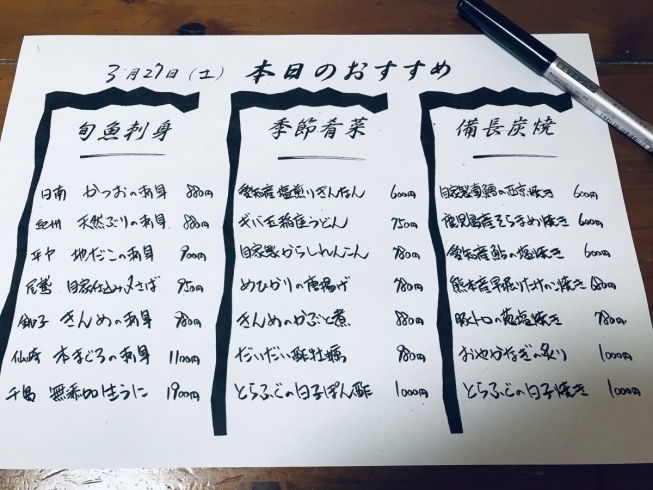 3月27日(土) 本日のおすすめ
旬魚刺身
日南 かつおの刺身 880円
紀州 天然ぶりの刺身 880円
地だこの刺身 900円
尾鷲 自家仕込み〆さば 950円
銚子 きんめの刺身 980円
仙崎 本まぐろの刺身 1100円
千島 無添加生うに 1900円
季節肴菜
愛知産塩煎りぎんなん 600円
ギバ五稲庭うどん 750円
自家製からしれんこん 780円
めひかりの唐揚げ 780円
きんめのかぶと煮 880円
だいだい酢牡蠣 980円
とらふぐの白子ぽん酢 1000円
備長炭焼
自家製 の西京焼き 600円
鹿児島産そらまめ焼き 600円
愛知産鮎の塩焼き 600円
熊本産早堀りたけのこ焼き 680円
豚トロの 塩焼き 780円
の炙り 1000円
とらふぐの白子焼き 1000円